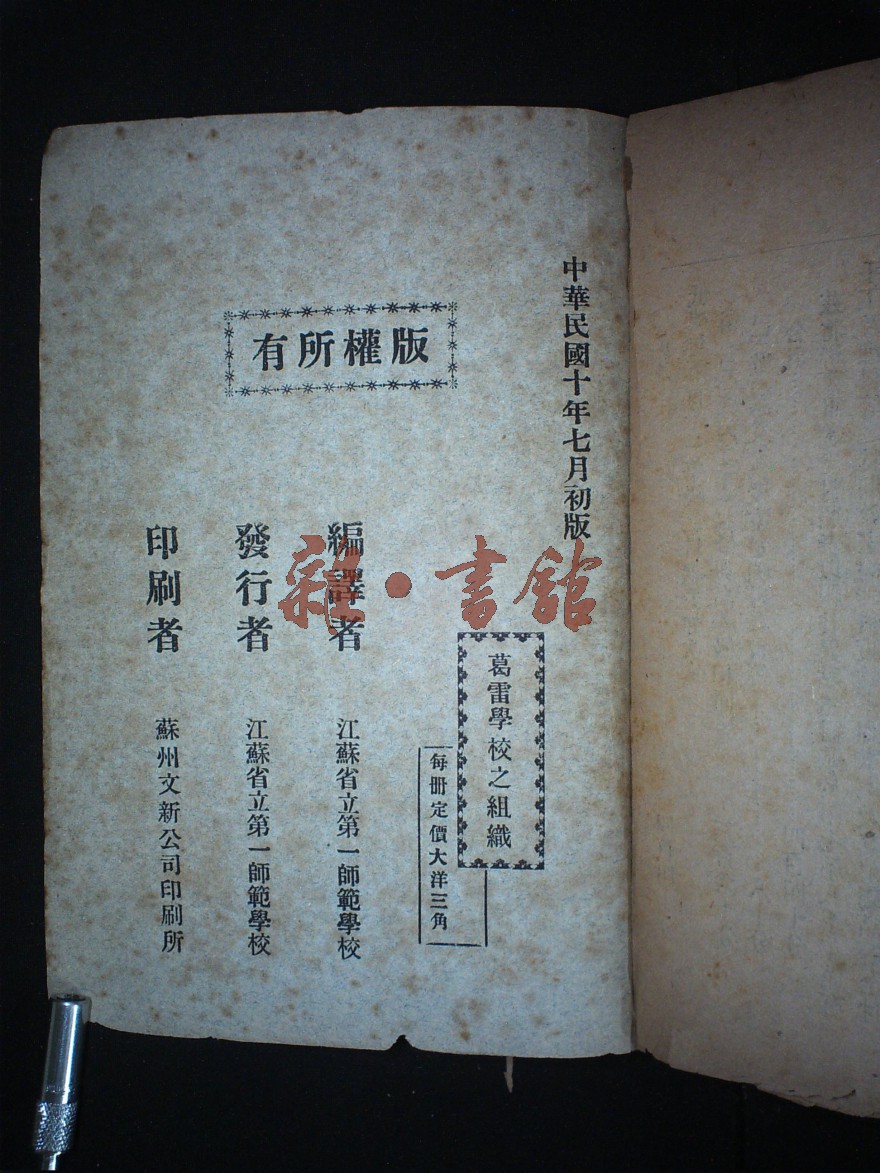 中華民國十年七月初版
版權所有
葛雷學校之組織
每冊定價大洋三角
編譯者 江蘇省立第一師範學校
發行者 江蘇省立第一師範學校
印刷者 蘇州文新公司印刷所
雜·書館